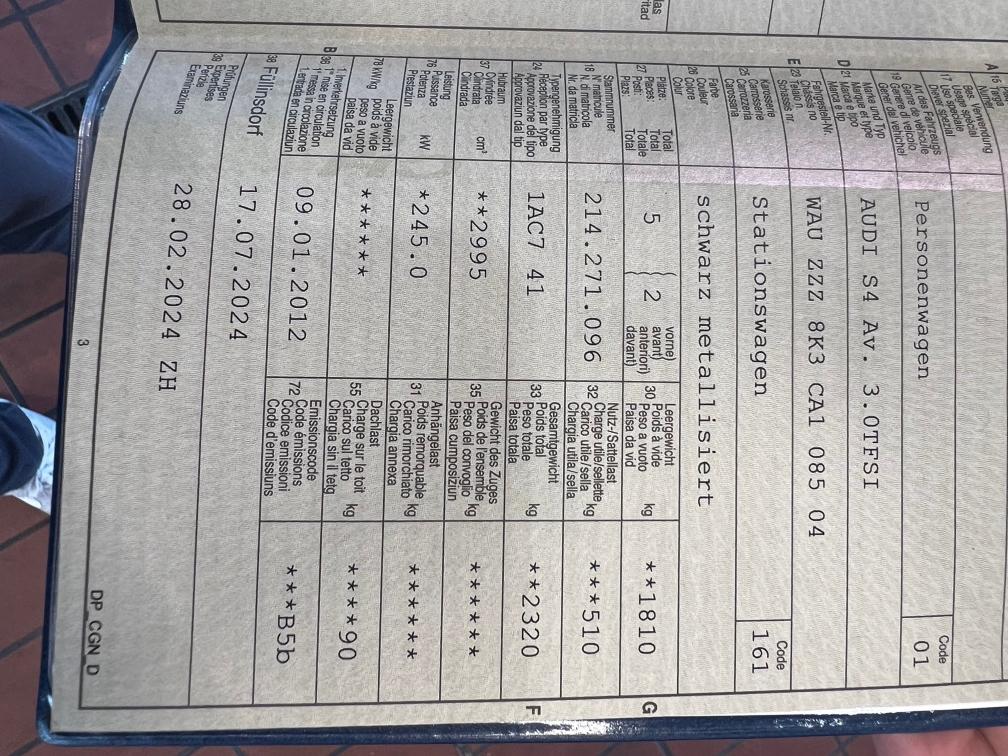 las
ritad
A 16
Bes. Verwendung
17 Usage spécial
Uso speciale
Diever spezial
Art des Fahrzeugs
19 Genre de véhicule
Genere di veicolo
Gener dal vehichel
Personenwagen
Code
01
D 21 Marke und Typ
Marque et type
Marca e tipo
Marca e tip
AUDI S4 Av. 3.0TFSI
E 23 Fahrgestell-Nr.
Châssis no
Telaio n.
Schassis nr.
WAU ZZZ 8K3 CA1 085 04
Karosserie
25 Carrosserie
Carrozzeria
Carossaria
Stationswagen
Code
161
Farbe
26 Couleur
Colore
Colur
schwarz metallisiert
Plätze: Total
27 Places: Total
Posti: Totale
Plazs: Total
5
2
vorne)
avant)
anteriori)
davant)
Leergewicht
30 Poids à vide
Peso a vuoto
Paisa da vid
kg
**1810
G
Stammnummer
18 N° matricule
N. di matricola
Nr. da matricla
214.271.096
Nutz-/Sattellast
32 Charge utile/sellette
Carico utile/sella
Chargia utila/sella
kg
***510
Typengenehmigung
24 Réception par type
Approvazione del tipo
Approvaziun dal tip
1AC7 41
Gesamtgewicht
33 Poids total
Peso totale
Paisa totala
kg
**2320
F
Hubraum
37 Cylindrée
Cilindrata
Cilindrada
cm³
**2995
Gewicht des Zuges
35 Poids de l'ensemble
Peso del convoglio
Paisa cumposiziun
kg
******
Leistung
76 Puissance
Potenza
Prestaziun
kW
*245.0
Anhängelast
31 Poids remorquable
Carico rimorchiato
Chargia annexa
kg
******
Leergewicht
78 kW/kg poids à vide
peso a vuoto
paisa da vid
******
Dachlast
55 Charge sur le toit
Carico sul tetto
Chargia sin il tetg
kg
****90
B
1. Inverkehrsetzung
36 1re mise en circulation
1a messa in circolazione
1. entrada en circulaziun
09.01.2012
Emissionscode
72 Code émissions
Codice emissioni
Code d'emissiuns
***B5b
38 Füllinsdorf
17.07.2024
Prüfungen
39 Expertises
Perizie
Examinaziuns
28.02.2024 ZH
3
DP_CGN_D